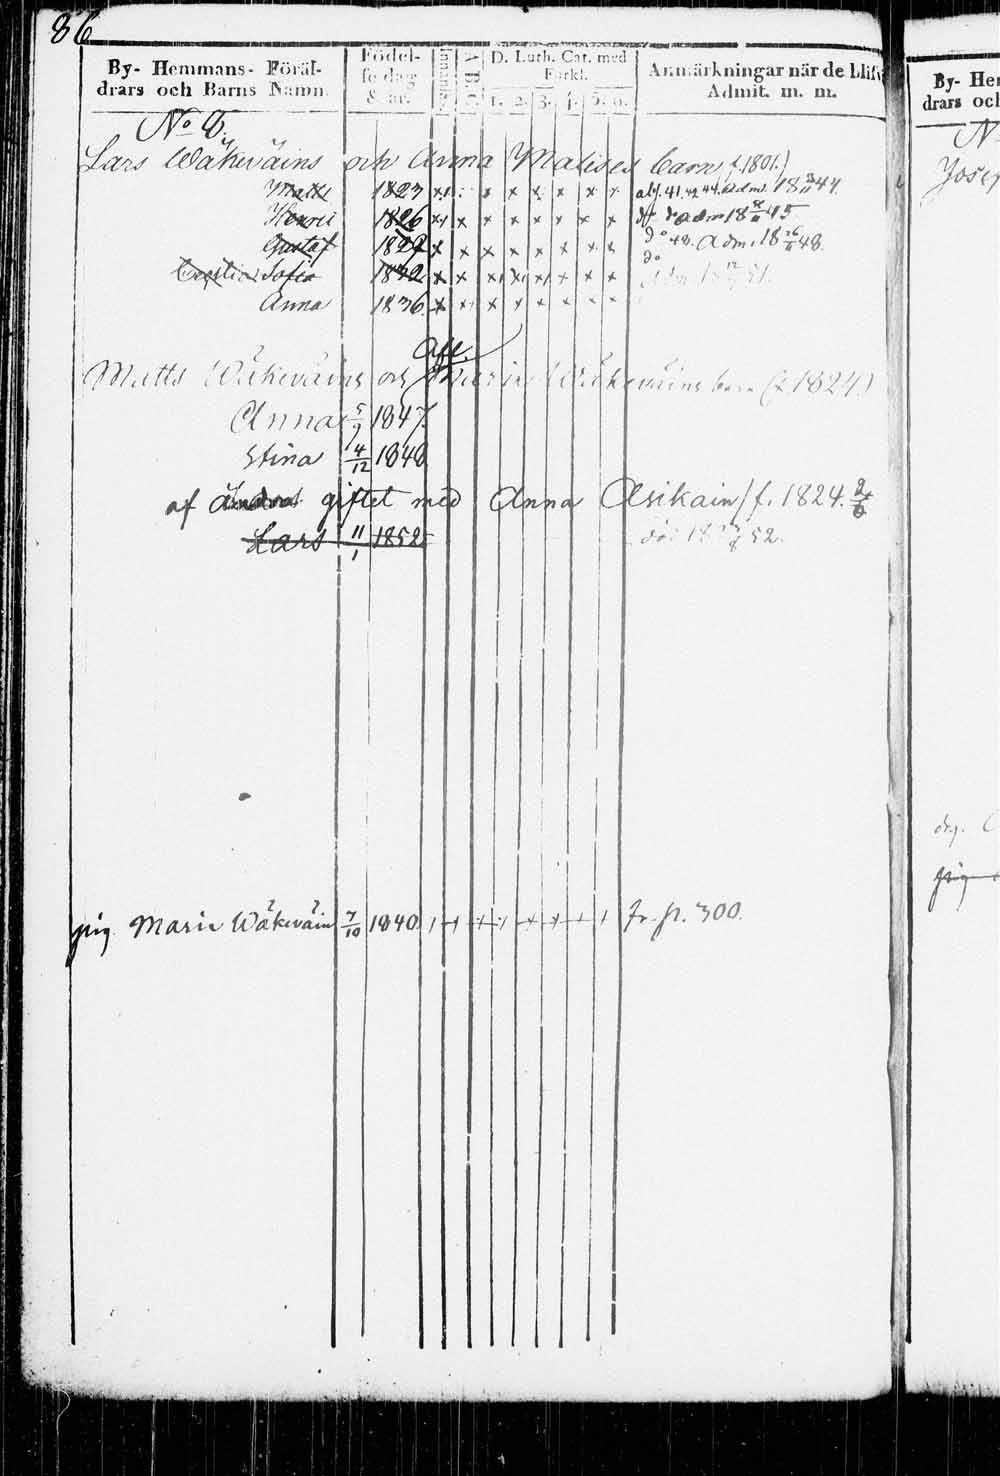 86
By- Hemmans- Föräl-
drars och Barns Namn.
Födel-
se dag
& år.
Innanl.
A B C
D. Luth. Cat. med
Förkl.
1. 2. 3. 4. 5. 6.
Anmärkningar när de blifv
Admit. m. m.
No 8.
Lars Wäkeväins och Anna Matises barn (f. 1801.)
Matts 1823 x x x x x x x x 41. 42 44. adm. 18 3/11 44.
Henric 1826 x x x x x x x x x do adm 18 45
Gustaf 1829 x x x x x x x x x do 48. adm. 18 26/11 48.
Sofia 1832 x x x x x x x x x do 51.
Anna 1836 x x x x x x x x x
afl.
Matts Wäkeväins och Maria Wäkeväins barn (f. 1824)
Anna 5/9 1847.
Stina 4/12 1848
af ändra giftet med Anna Asikain (f. 1824.
Lars 11/1 1852 död 18 52.
pig. Maria Wäkeväin 7/10 1840 fr. p. 300.
By- Hem
drars och
N
Josep
pig